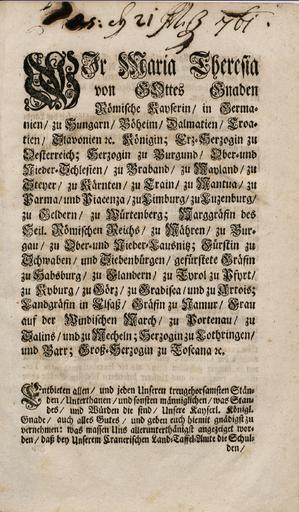 21 761
Wir Maria Theresia
von GOttes Gnaden
Römische Kayserin/ in Germa-
nien/ zu Hungarn/ Böheim/ Dalmatien/ Croa-
tien/ Slavonien ꝛc. Königin; Ertz-Herzogin zu
Oesterreich; Herzogin zu Burgund/ Ober-und
Nieder-Schlesien/ zu Braband/ zu Mayland/ zu
Steyer/ zu Kärnten/ zu Crain/ zu Mantua/ zu
Parma/ und Piacenza/ zu Limburg/ zu Luzenburg/
zu Geldern/ zu Würtenberg; Marggräfin des
Heil. Römischen Reichs/ zu Mähren/ zu Bur-
gau/ zu Ober-und Nieder-Laußnitz; Fürstin zu
Schwaben/ und Siebenbürgen/ gefürstete Gräfin
zu Habsburg/ zu Flandern/ zu Tyrol zu Pfyrt/
zu Kyburg/ zu Görz/ zu Gradisca/ und zu Artois;
Landgräfin in Elsaß/ Gräfin zu Namur/ Frau
auf der Windischen March/ zu Portenau/ zu
Salins/ und zu Mecheln; Herzogin zu Lothringen/
und Barr; Groß-Herzogin zu Toscana ꝛc.
Entbieten allen/ und jeden Unseren treugehorsamsten Stän-
den/ Unterthanen/ und sonsten männiglichen/ was Stan-
des/ und Würden die sind/ Unsere Kayserl. Königl.
Gnade/ auch alles Gutes/ und geben euch hiemit gnädigst zu
vernehmen: was massen Uns allerunterthänigst angezeiget wor-
den/ daß bey Unserem Crainerischen Land-Taffel-Amte die Schul-
den/